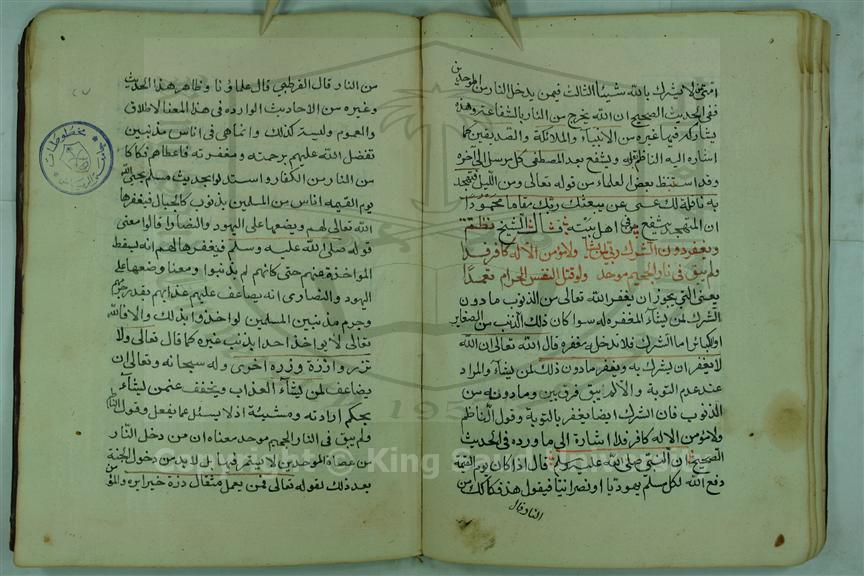 امتى لا يشرك بالله شيئا الثالث فيمن يدخل النار من الموحدين
ففى الحديث الصحيح ان الله يخرج من النار بالشفاعة وهذه
يشاركه فيها غيره من الانبياء والملائكة والصديقين كما
اشار اليه الناظم بقوله ويشفع بعد المصطفى كل مرسل الى آخره
وقد استنبط بعض العلماء من قوله تعالى ومن الليل فتهجد
به نافلة لك عسى ان يبعثك ربك مقاما محمودا
ان المتهجد يشفع فى اهل بيته قال الشيخ
ويغفر دون الشرك ربى لمن يشا ولا مؤمن الا له كافر فدا
ولم يبق فى نار الجحيم موحد ولو قتل النفس الحرام تعمدا
يعنى انه يجوز ان يغفر الله تعالى من الذنوب ما دون
الشرك لمن يشآء المغفره له سوا كان ذلك الذنب من الصغاير
او الكبائر اما الشرك فلا تدخله مغفره قال الله تعالى ان الله
لا يغفر ان يشرك به ويغفر ما دون ذلك لمن يشآء والمراد
عند عدم التوبة والا لم يبق فرق بين وما دونه من
الذنوب فان الشرك ايضا يغفر بالتوبة وقول الناظم
ولا مؤمن الا له كافر فدا اشارة الى ما ورد فى الحديث
الصحيح ان النبى صلى الله عليه وسلم قال اذا كان يوم القيمة
دفع الله لكل مسلم يهوديا او نصرانيا فيقول هذا فكاكك من
النار قال
من النار قال القرطبى قال علماؤنا وظاهر هذا الحديث
وغيره من الاحاديث الوارده فى هذا المعنا الاطلاق
والعموم وليست كذلك وانما هى فى اناس مذنبين
تفضل الله عليهم برحمته ومغفرته فاعطاهم فكاكا
من النار من الكفار واستدلوا بحديث مسلم يجئ
يوم القيمه اناس من المسلمين بذنوب كالجبال فيغفرها
الله تعالى لهم ويضعها على اليهود والنصارا قالوا معنى
قوله صلى الله عليه وسلم فيغفرها لهم انه يسقط
المواخذة عنهم حتى كانهم لم يذنبوا ومعنا وضعها على
اليهود والنصارى انه يضاعف عليهم عذابهم بقدر
وجرم مذنبين المسلمين لو اخذوا بذلك والا فالله
تعالى لا يواخذ احدا بذنب غيره كما قال تعالى ولا
تزر وازرة وزر اخرى وله سبحانه وتعالى ان
يضاعف لمن يشآء العذاب ويخفف عن من يشآء
بحكم ارادته ومشيئته اذ لا يسئل عما يفعل وقول الناظم
ولم يبق فى النار الجحيم موحد معناه ان من دخل النار
من عصاة الموحدين لا يستمر فيها بل لا بد من دخول الجنة
بعد ذلك لقوله تعالى فمن يعمل مثقال ذرة خيرا يره